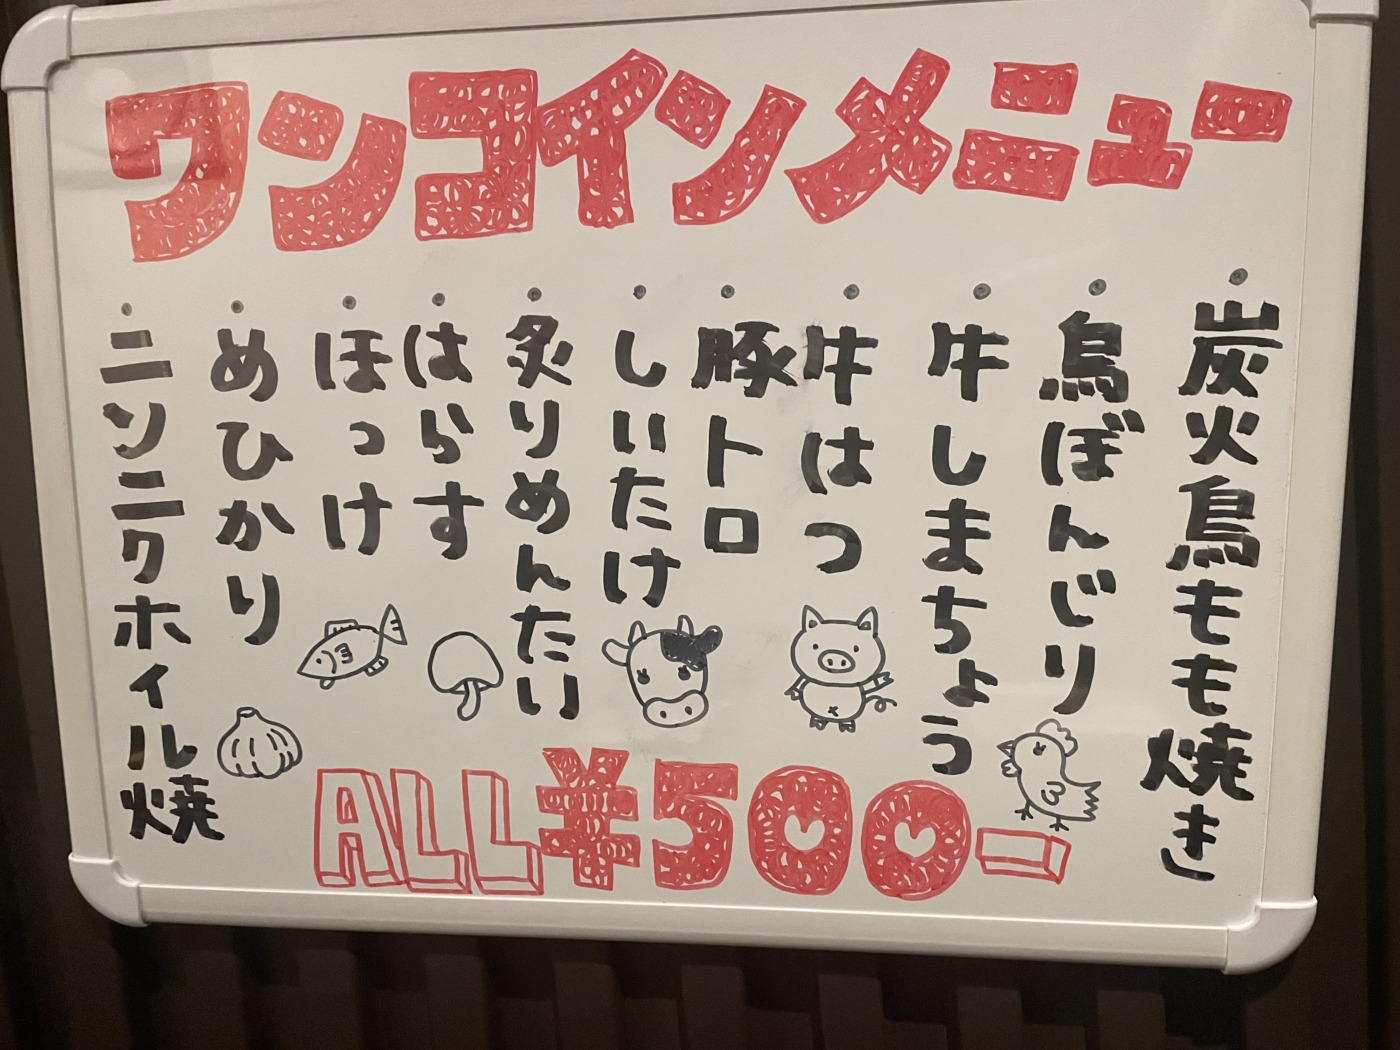 ワンコインメニュー
・炭火鳥もも焼き
・鳥ぼんじり
・牛しまちょう
・牛はつ
・豚トロ
・しいたけ
・炙りめんたい
・はらす
・ほっけ
・めひかり
・ニンニクホイル焼
ALL¥500-